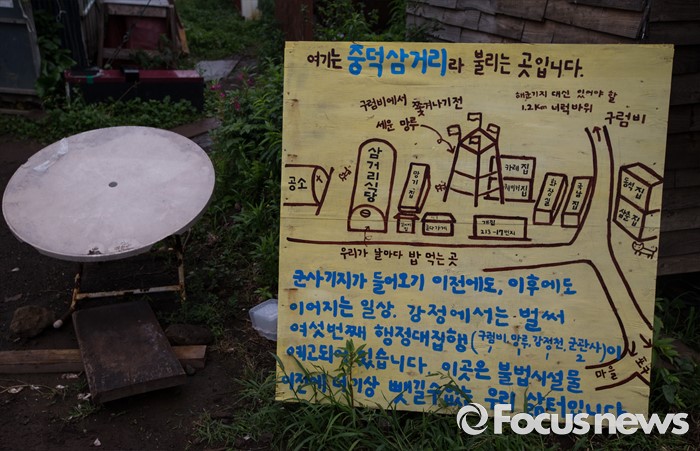 여기는 중덕삼거리라 불리는 곳입니다.
구럼비에서 쫓겨나기전
세운 망루
해군기지 대신 있어야 할
1.2km 너럭바위
구럼비
공소
삼거리식당
집
집
화장실
집
집
우리가 날마다 밥 먹는 곳
군사기지가 들어오기 이전에도, 이후에도
이어지는 일상. 강정에서는 벌써
여섯번째 행정대집행(구럼비, 망루, 강정천, 군관사)이
예고되어 있습니다. 이곳은 불법시설물
이전에 더이상 뺏길수없는 우리 삶터입니다.
마을
©Focusnews